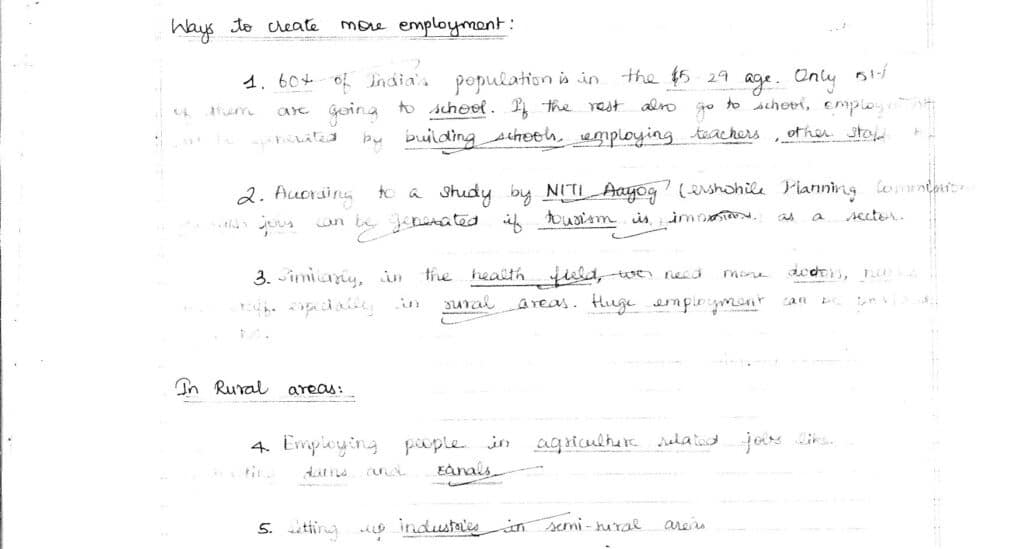 Ways to create more employment:
1. 60% of India's population is in the 15-29 age. Only 51%
of them are going to school. If the rest also go to school, employment
can be generated by building schools, employing teachers, other staff
2. According to a study by NITI Aayog (ershohile Planning Commission
jobs can be generated if tourism is as a sector.
3. Similarly, in the health field, we need more doctors,
staff. especially in rural areas. Huge employment can be
In Rural areas:
4. Employing people in agriculture related jobs like
dams and canals
5. Setting up industries in semi-rural areas